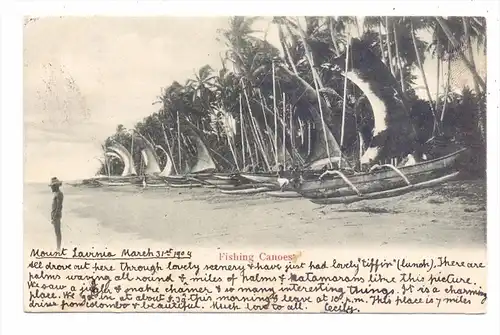 Fishing Canoes
Mount Lavinia March 31st 1904
All drove out here through lovely scenery & have just had lovely "tiffin" (lunch). There are
palms waving all round & miles of palms & Catamarans like this picture.
We saw a & snake charmer & so many interesting things. It is a charming
place. We in at about 8.30 this morning & leave at 10 p.m. This place is 7 miles
drive from Colombo & beautiful. Much love to all. Cecily.